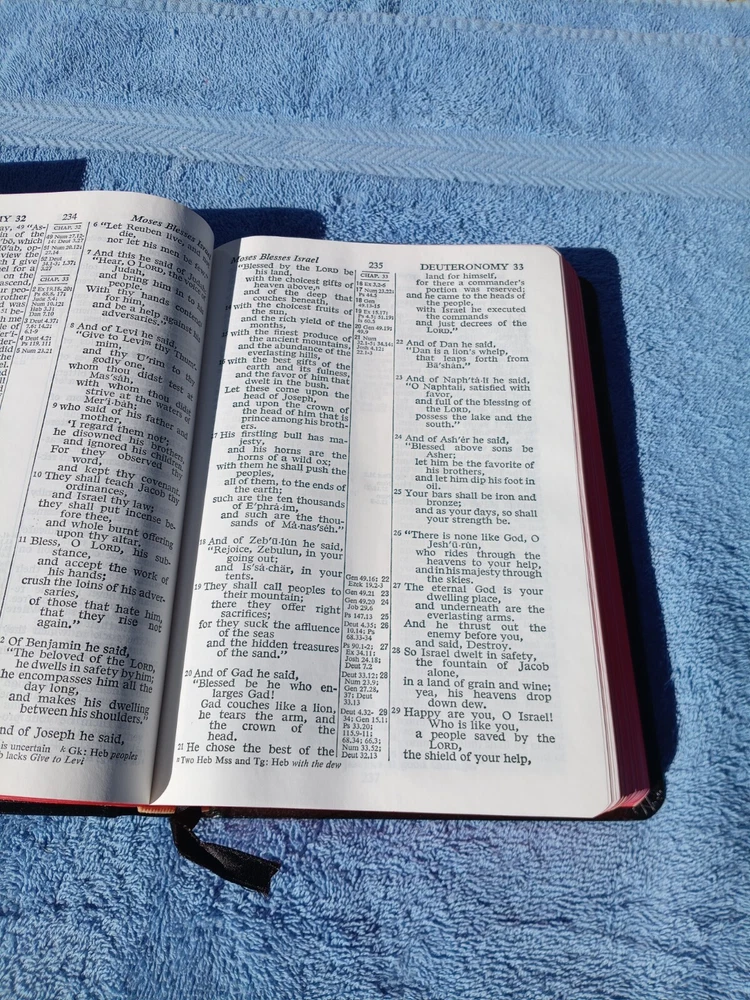 Y 32 234 Moses Blesses Israel
6 "Let Reuben live, and
die,
nor let his men be
7 And this he said of Judah:
"Hear, O LORD, the voice of
Judah,
and bring him in to
people.
With thy hands contend
for him,
and be a help against
adversaries."
8 And of Levi he said,
"Give to Levi thy Thummim,
and thy U'rim to thy
godly one,
whom thou didst test at
Mas'sah,
with whom thou didst
strive at the waters of
Mer'i-bah;
9 who said of his father and
mother,
'I regard them not';
he disowned his brothers,
and ignored his children.
For they observed thy
word,
and kept thy covenant.
10 They shall teach Jacob thy
ordinances,
and Israel thy law;
they shall put incense be-
fore thee,
and whole burnt offering
upon thy altar.
11 Bless, O LORD, his sub-
stance,
and accept the work of
his hands;
crush the loins of his adver-
saries,
of those that hate him,
that they rise not
again."
2 Of Benjamin he said,
"The beloved of the LORD,
he dwells in safety by him;
he encompasses him all the
day long,
and makes his dwelling
between his shoulders."
nd of Joseph he said,
is uncertain k Gk: Heb peoples
b lacks Give to Levi
Moses Blesses Israel 235 DEUTERONOMY 33
"Blessed by the LORD be
his land,
with the choicest gifts of
heaven above,n
and of the deep that
couches beneath,
14 with the choicest fruits of
the sun,
and the rich yield of the
months,
15 with the finest produce of
the ancient mountains,
and the abundance of the
everlasting hills,
16 with the best gifts of the
earth and its fulness,
and the favor of him that
dwelt in the bush.
Let these come upon the
head of Joseph,
and upon the crown of
the head of him that is
prince among his broth-
ers.
17 His firstling bull has ma-
jesty,
and his horns are the
horns of a wild ox;
with them he shall push the
peoples,
all of them, to the ends of
the earth;
such are the ten thousands
of E'phrà-im,
and such are the thou-
sands of Mà-nas'sèh."
18 And of Zeb'ū-lùn he said,
"Rejoice, Zebulun, in your
going out;
and Is'sà-chàr, in your
tents.
19 They shall call peoples to
their mountain;
there they offer right
sacrifices;
for they suck the affluence
of the seas
and the hidden treasures
of the sand."
20 And of Gad he said,
"Blessed be he who en-
larges Gad!
Gad couches like a lion,
he tears the arm, and
the crown of the
head.
21 He chose the best of the
n Two Heb Mss and Tg: Heb with the dew
CHAP. 33
Gen 49.16; 22
Ezek 19.2-3
Gen 49.21 23
Gen 49.20 24
Job 29.6
Ps 147.13 25
Deut 4.35; 26
10.14; Ps
68.33-34
Ps 90.1-2; 27
Ex 34.11;
Josh 24.18;
Deut 7.2
Deut 33.12; 28
Num 23.9;
Gen 27.28,
37; Deut
33.13
Deut 4.32- 29
34; Gen 15.1;
Ps 33.20;
115.9-11;
68.34; 66.3;
Num 33.52;
Deut 32.13
land for himself,
for there a commander's
portion was reserved;
and he came to the heads of
the people,
with Israel he executed
the commands
and just decrees of the
LORD."
22 And of Dan he said,
"Dan is a lion's whelp,
that leaps forth from
Bà'shàn."
23 And of Naph'tà-lī he said,
"O Naphtali, satisfied with
favor,
and full of the blessing of
the LORD,
possess the lake and the
south."
24 And of Ash'ér he said,
"Blessed above sons be
Asher;
let him be the favorite of
his brothers,
and let him dip his foot in
oil.
25 Your bars shall be iron and
bronze;
and as your days, so shall
your strength be.
26 "There is none like God, O
Jesh'ū-rùn,
who rides through the
heavens to your help,
and in his majesty through
the skies.
27 The eternal God is your
dwelling place,
and underneath are the
everlasting arms.
And he thrust out the
enemy before you,
and said, Destroy.
28 So Israel dwelt in safety,
the fountain of Jacob
alone,
in a land of grain and wine;
yea, his heavens drop
down dew.
29 Happy are you, O Israel!
Who is like you,
a people saved by the
LORD,
the shield of your help,